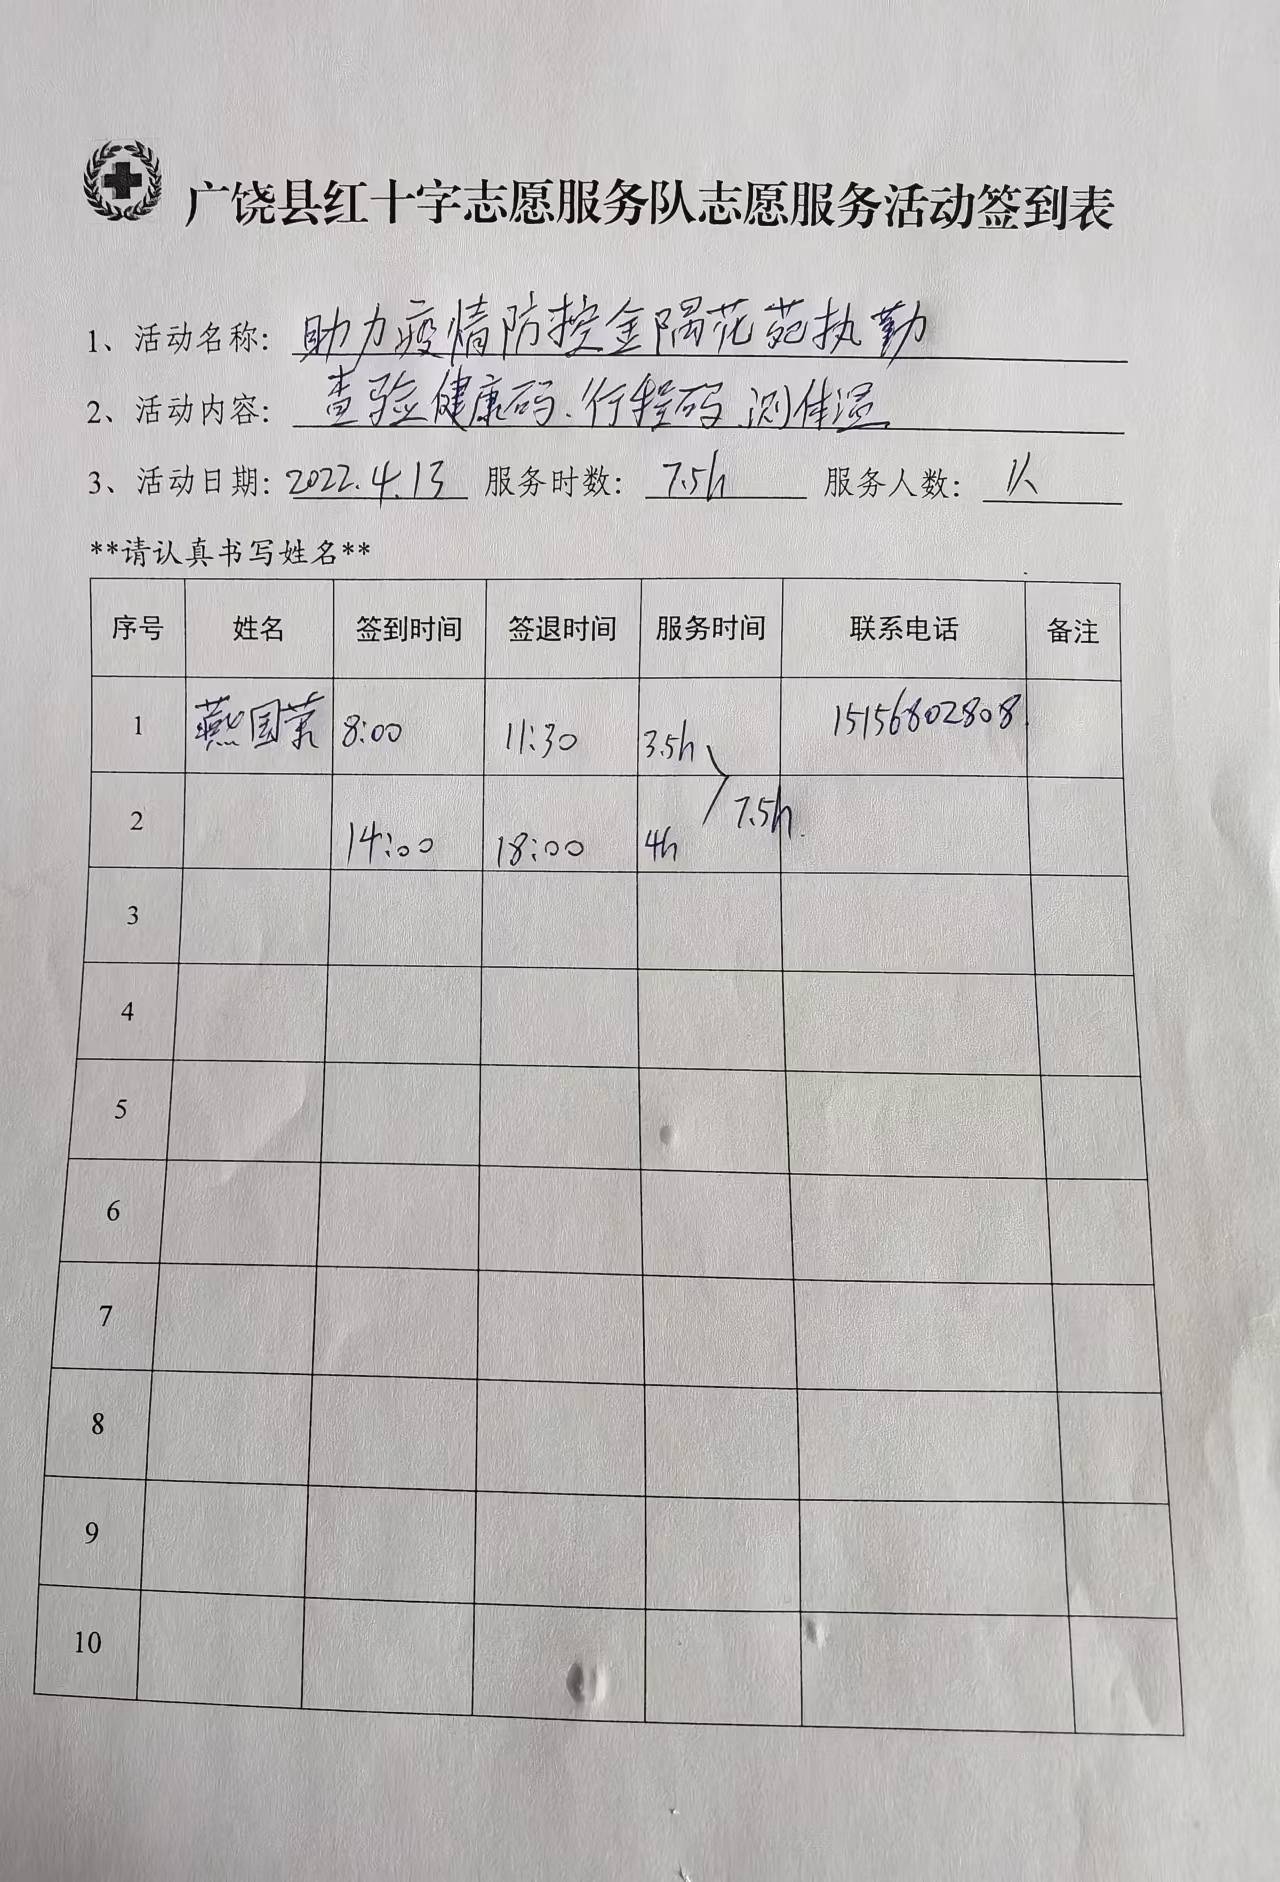 广饶县红十字志愿服务队志愿服务活动签到表
1、活动名称：助力疫情防控金隅花苑执勤
2、活动内容：查验健康码、行程码、测体温
3、活动日期：2022.4.13 服务时数：7.5h 服务人数：1人
**请认真书写姓名**
序号 姓名 签到时间 签退时间 服务时间 联系电话 备注
1 燕国荣 8:00 11:30 3.5h 15156802808
2 14:00 18:00 4h 7.5h
3
4
5
6
7
8
9
10